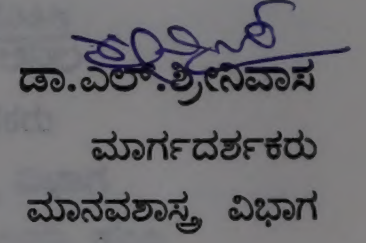 ಡಾ.ಎಲ್.ಶ್ರೀನಿವಾಸ
ಮಾರ್ಗದರ್ಶಕರು
ಮಾನವಶಾಸ್ತ್ರ ವಿಭಾಗ